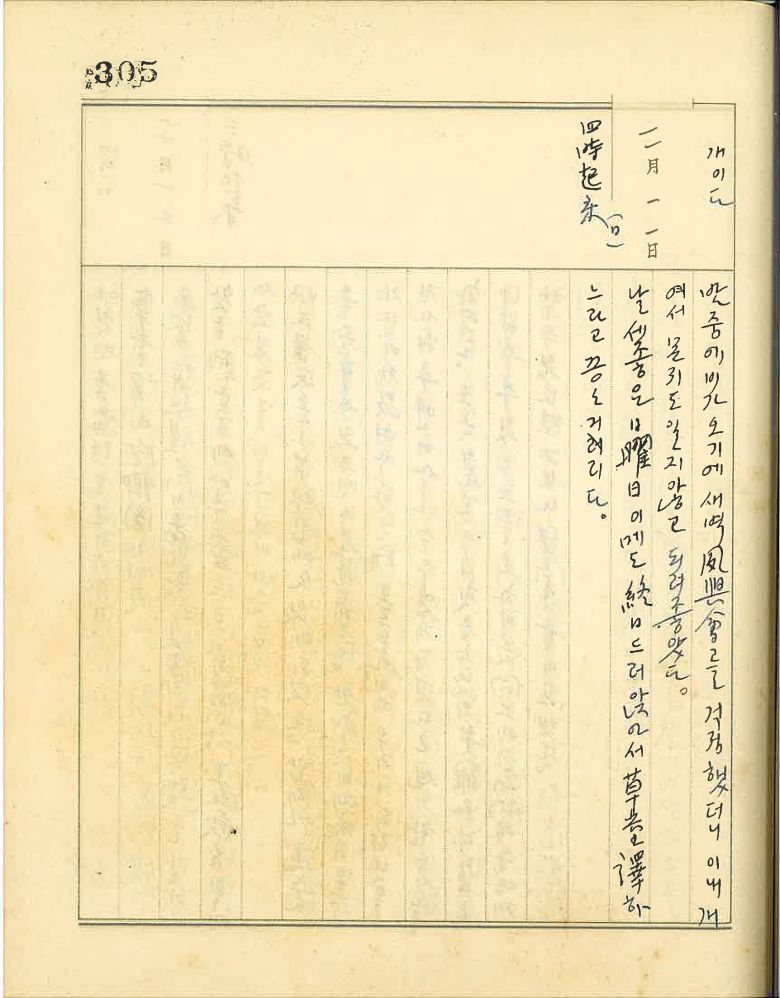 305
개이다
一一月 一一日
四時起床(日)
밤중에비가 오기에 새벽 夙興會를 걱정했더니 이내 개
여서 몬지도일지않고 되려좋았다。
날세좋은日曜日이메도 終日드러앉아서 草 譯하
느라고